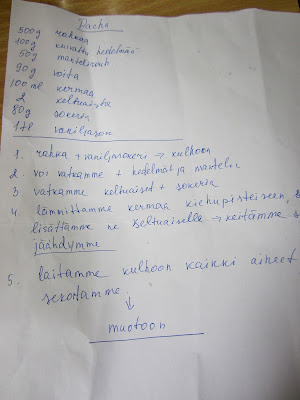 Pacha
500g rahkaa
100g kuivattu hedelmää
50g mantelirouh
90g voita
100 ml kermaa
2 keltuaista
80g sokeria
1 tl vaniljason
1. rahka + vaniljasokeri → kulhoon
2. voi vatkamme + hedelmät ja mantelit
3. vatkamme keltuaiset + sokeria
4. lämmittämme kermaa kiehupisteiseen,
lisättämme ne keltuaiselle → keitämme
jäähdymme
5. laitamme kulhoon kaikki aiheet
sekoitamme
↓
muotoon